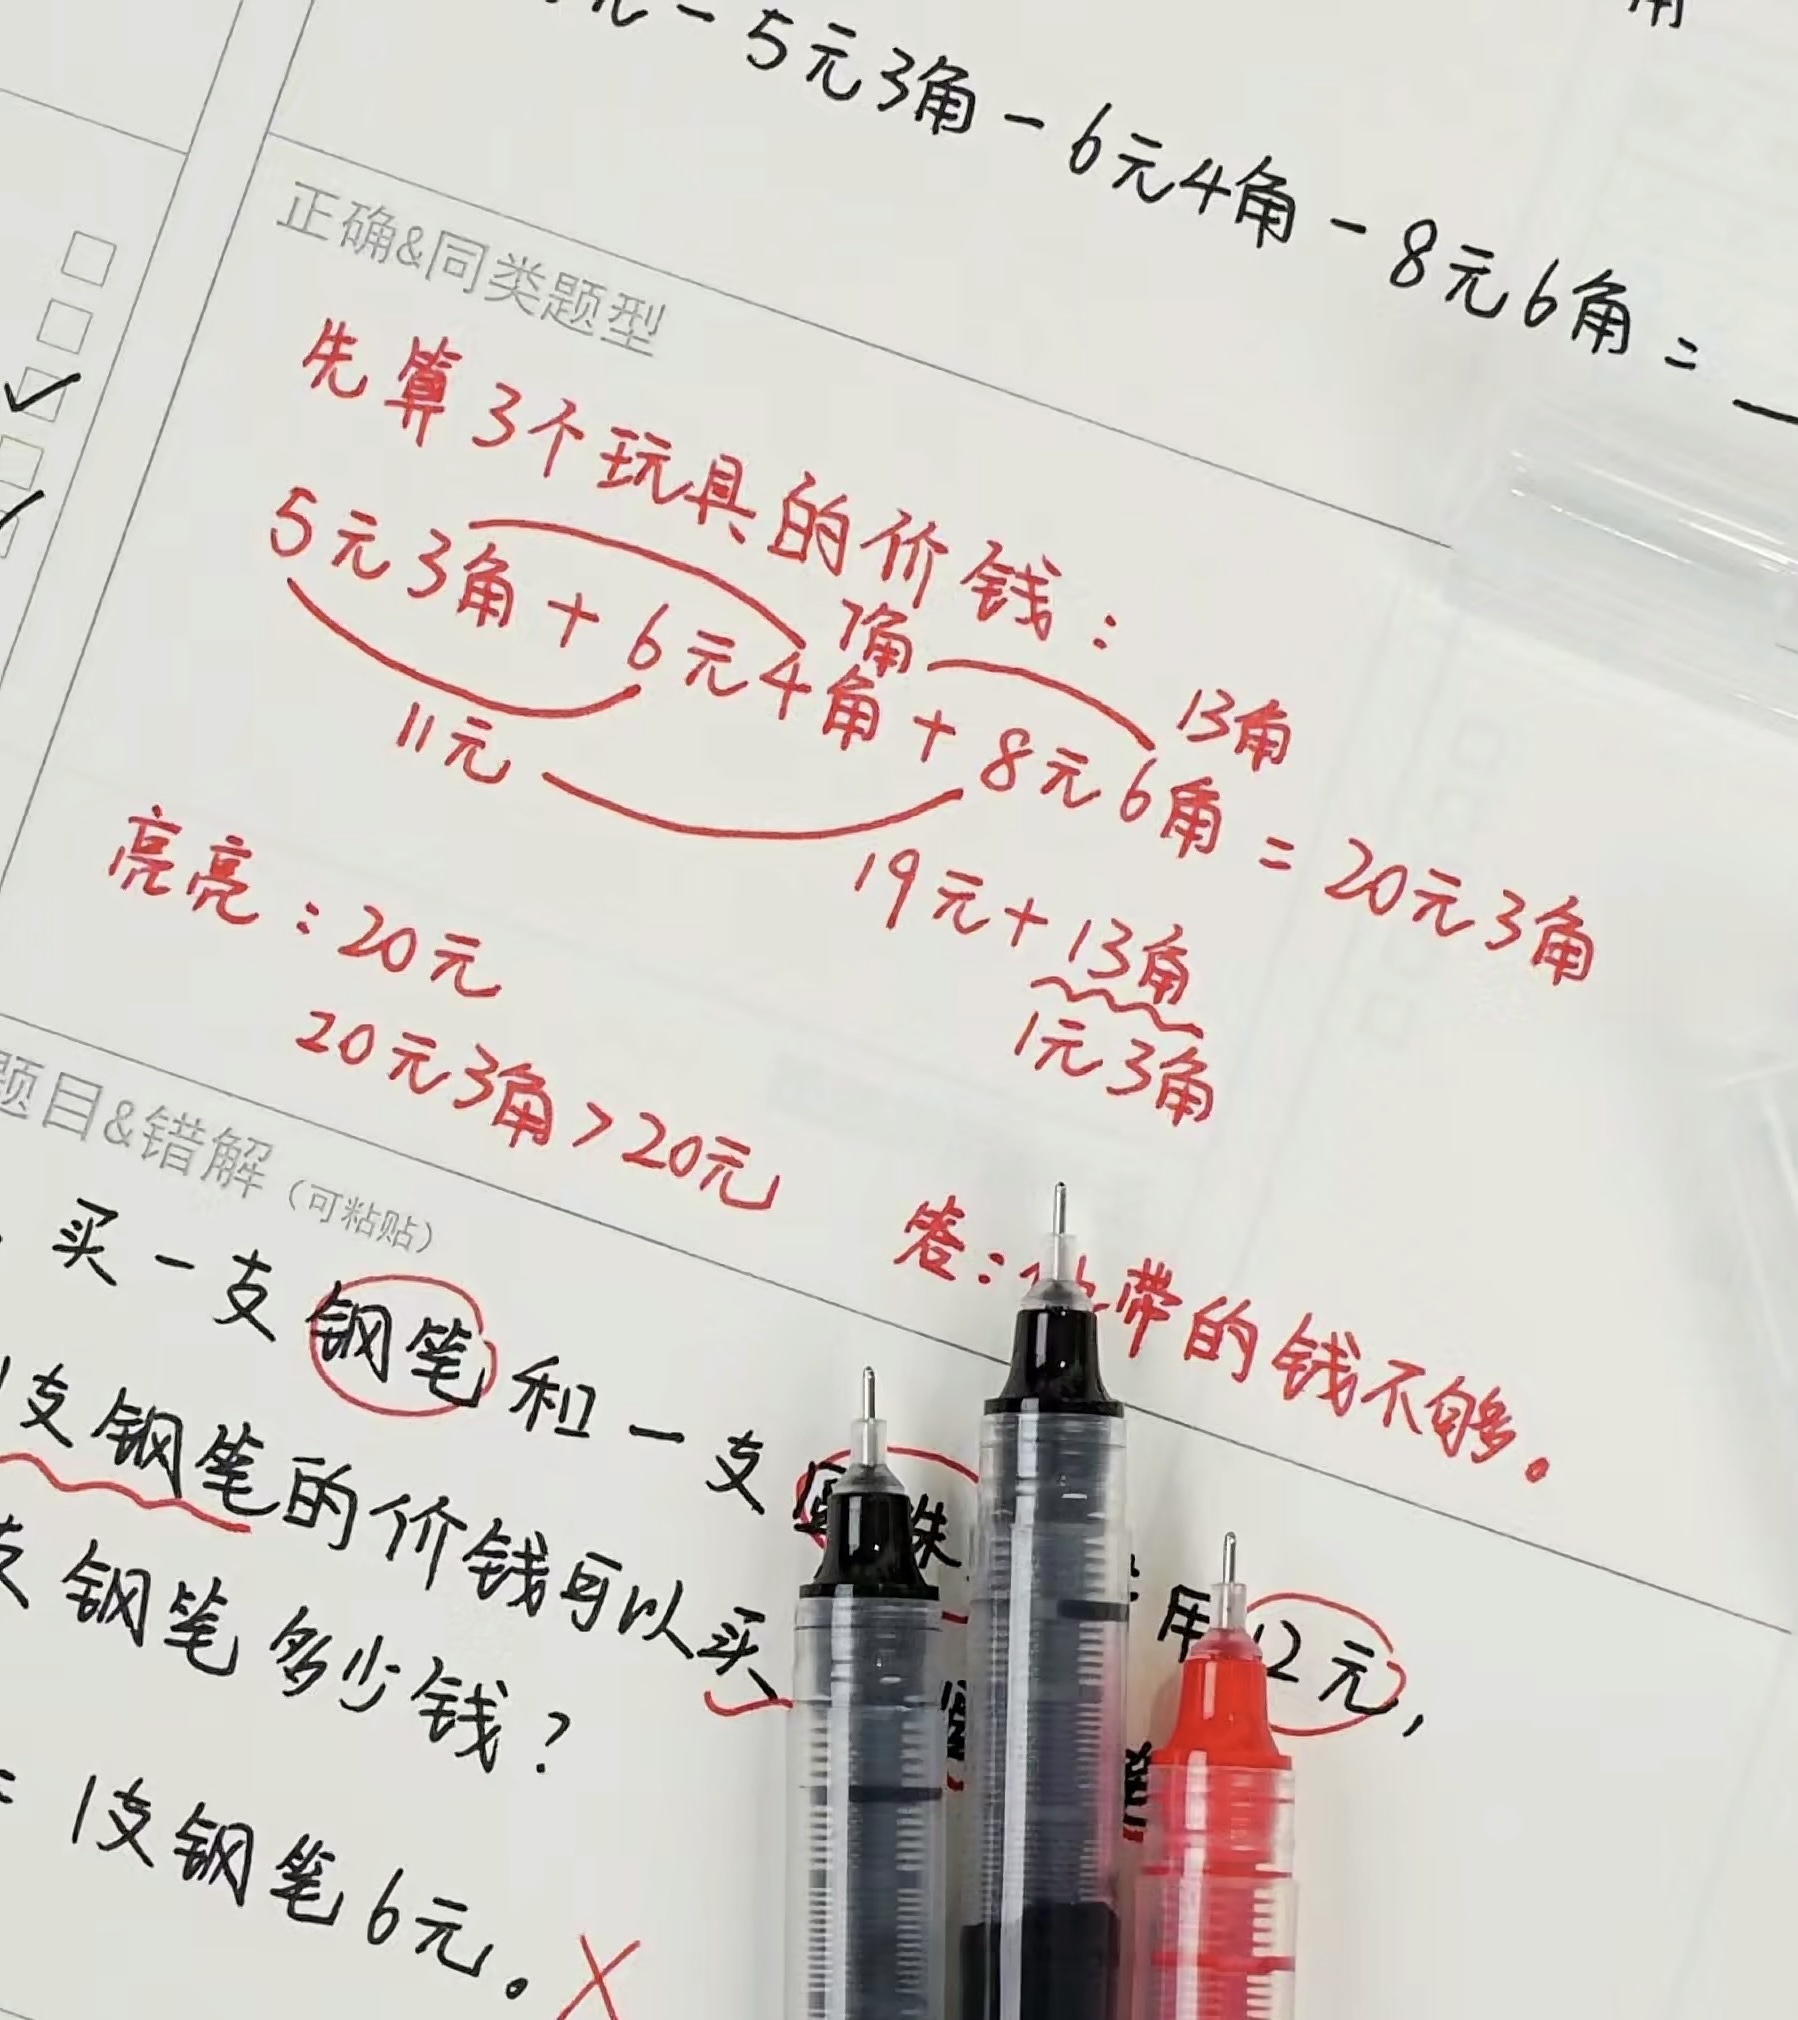 角
元-5元3角-6元4角-8元6角=
正确&同类题型
先算3个玩具的价钱:
5元3角+6元4角+8元6角=20元3角
7角
13角
11元
19元+13角
1元3角
亮亮:20元
20元3角>20元
答: 带的钱不够。
题目&错解(可粘贴)
买一支钢笔和一支 珠 用12元,
支钢笔的价钱可以买
支钢笔多少钱?
= 1支钢笔6元。